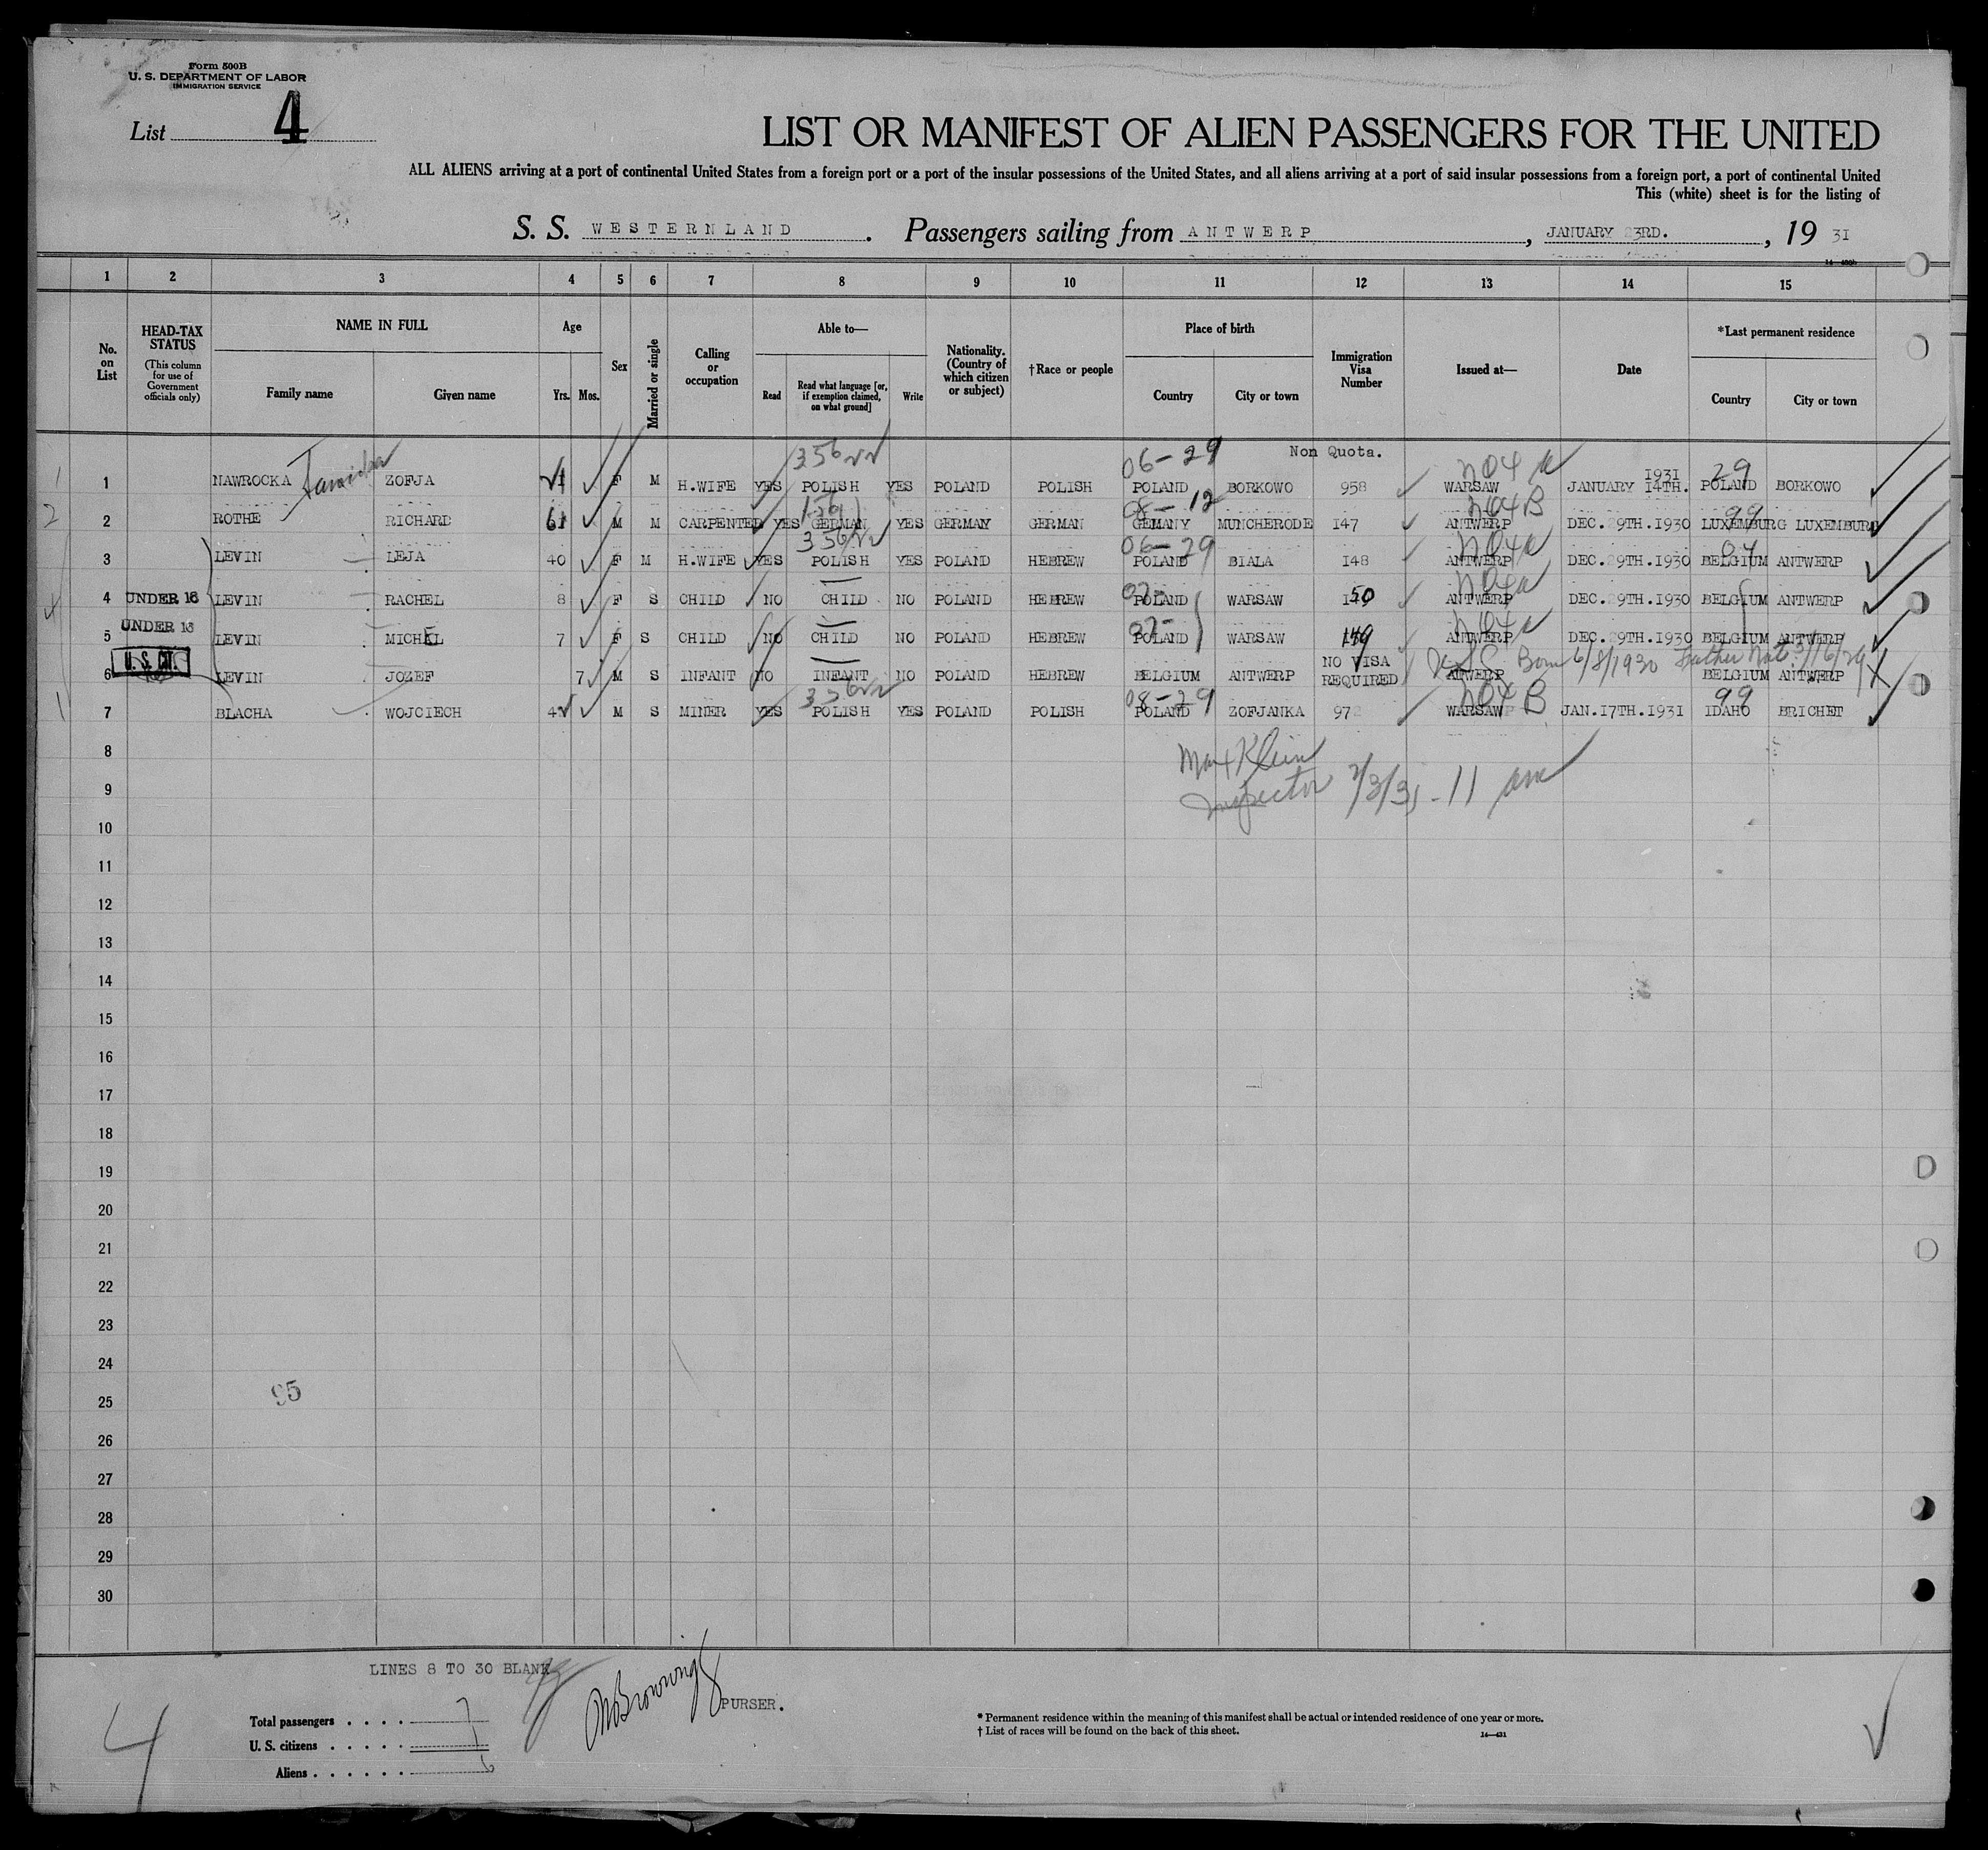 Form 500B
U. S. DEPARTMENT OF LABOR
IMMIGRATION SERVICE
List 4
LIST OR MANIFEST OF ALIEN PASSENGERS FOR THE UNITED
ALL ALIENS arriving at a port of continental United States from a foreign port or a port of the insular possessions of the United States, and all aliens arriving at a port of said insular possessions from a foreign port, a port of continental United
This (white) sheet is for the listing of
S. S. WESTERNLAND. Passengers sailing from ANTWERP, JANUARY 23RD., 19 31
1 2 3 4 5 6 7 8 9 10 11 12 13 14 15
No. on List
HEAD-TAX STATUS
(This column for use of Government officials only)
NAME IN FULL
Family name Given name
Age
Yrs. Mos.
Sex
Married or single
Calling or occupation
Able to—
Read
Read what language [or, if exemption claimed, on what ground]
Write
Nationality. (Country of which citizen or subject)
†Race or people
Place of birth
Country City or town
Immigration Visa Number
Issued at—
Date
*Last permanent residence
Country City or town
356 06-29 Non Quota. 1931 29
1 NAWROCKA ZOFJA F M H.WIFE YES POLISH YES POLAND POLISH POLAND BORKOWO 958 WARSAW JANUARY 14TH. POLAND BORKOWO
156 08-12 99
2 ROTHE RICHARD 61 M M CARPENTED YES GERMAN YES GERMANY GERMAN GEMANY MUNCHERODE 147 ANTWERP DEC.29TH.1930 LUXEMBURG LUXEMBURG
356 06-29 04
3 LEVIN LEJA 40 F M H.WIFE YES POLISH YES POLAND HEBREW POLAND BIALA 148 ANTWERP DEC.29TH.1930 BELGIUM ANTWERP
4 UNDER 16 LEVIN RACHEL 8 F S CHILD NO CHILD NO POLAND HEBREW POLAND WARSAW 150 ANTWERP DEC.29TH.1930 BELGIUM ANTWERP
UNDER 16
5 LEVIN MICHEL 7 F S CHILD NO CHILD NO POLAND HEBREW POLAND WARSAW 149 ANTWERP DEC.29TH.1930 BELGIUM ANTWERP
U. S. CIT. NO VISA REQUIRED Born 6/8/1930 Father Nat. 3/16/29
6 LEVIN JOZEF 7 M S INFANT NO INFANT NO POLAND HEBREW BELGIUM ANTWERP BELGIUM ANTWERP
356 08-29 99
7 BLACHA WOJCIECH M S MINER YES POLISH YES POLAND POLISH POLAND ZOFJANKA 972 WARSAW JAN.17TH.1931 IDAHO BRICHET
Max Klein
Inspector 2/3/31 - 11 am
8
9
10
11
12
13
14
15
16
17
18
19
20
21
22
23
24
25
26
27
28
29
30
95
LINES 8 TO 30 BLANK
Browning PURSER.
4
Total passengers . . . . 7
U. S. citizens . . . . . 1
Aliens . . . . . . 6
* Permanent residence within the meaning of this manifest shall be actual or intended residence of one year or more.
† List of races will be found on the back of this sheet.
14—431